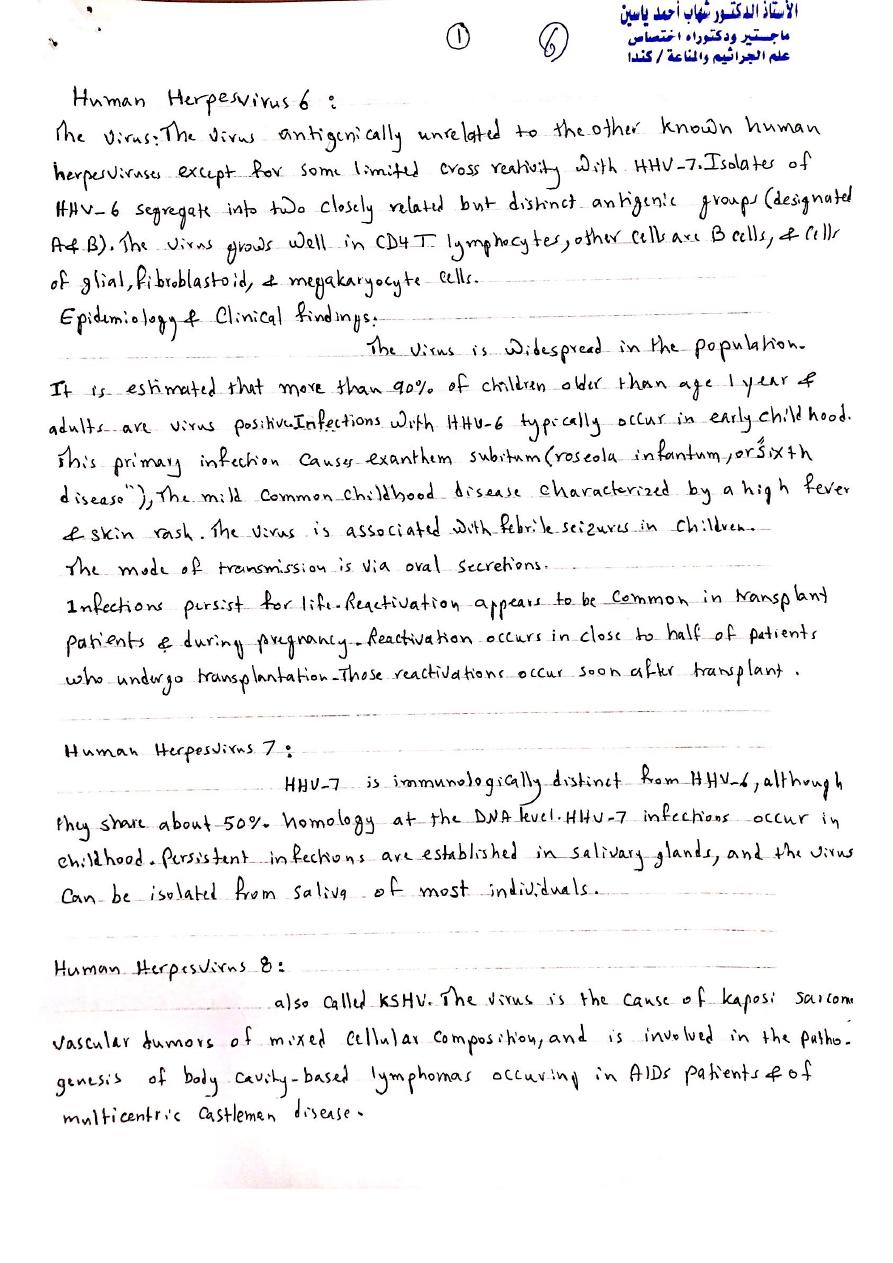 الأستاذ الدكتور شهاب أحمد ياسين
ماجستير ودكتوراه اختصاص
علم الجراثيم والمناعة / كندا
1
6
Human Herpesvirus 6 :
The virus: The virus antigenically unrelated to the other known human
herpesviruses except for some limited cross reativity with HHV-7. Isolates of
HHV-6 segregate into two closely related but distinct antigenic groups (designated
A & B). The virus grows well in CD4 T lymphocytes, other cells are B cells, & cells
of glial, fibroblastoid, & megakaryocyte cells.
Epidemiology & Clinical findings:
The virus is widespread in the population.
It is estimated that more than 90% of children older than age 1 year &
adults are virus positive. Infections with HHV-6 typically occur in early childhood.
This primary infection causes exanthem subitum (roseola infantum, or "sixth
disease"), The mild common childhood disease characterized by a high fever
& skin rash. The virus is associated with febrile seizures in children.
The mode of transmission is via oral secretions.
Infections persist for life. Reactivation appears to be common in transplant
patients & during pregnancy. Reactivation occurs in close to half of patients
who undergo transplantation. Those reactivations occur soon after transplant .
Human Herpesvirus 7 :
HHV-7 is immunologically distinct from HHV-6, although
they share about 50% homology at the DNA level. HHV-7 infections occur in
childhood. Persistent infections are established in salivary glands, and the virus
can be isolated from saliva of most individuals.
Human Herpesvirus 8 :
also called KSHV. The virus is the cause of kaposi sarcom
vascular tumors of mixed cellular composition, and is involved in the patho-
genesis of body cavity-based lymphomas occuring in AIDs patients & of
multicentric castlemen disease.